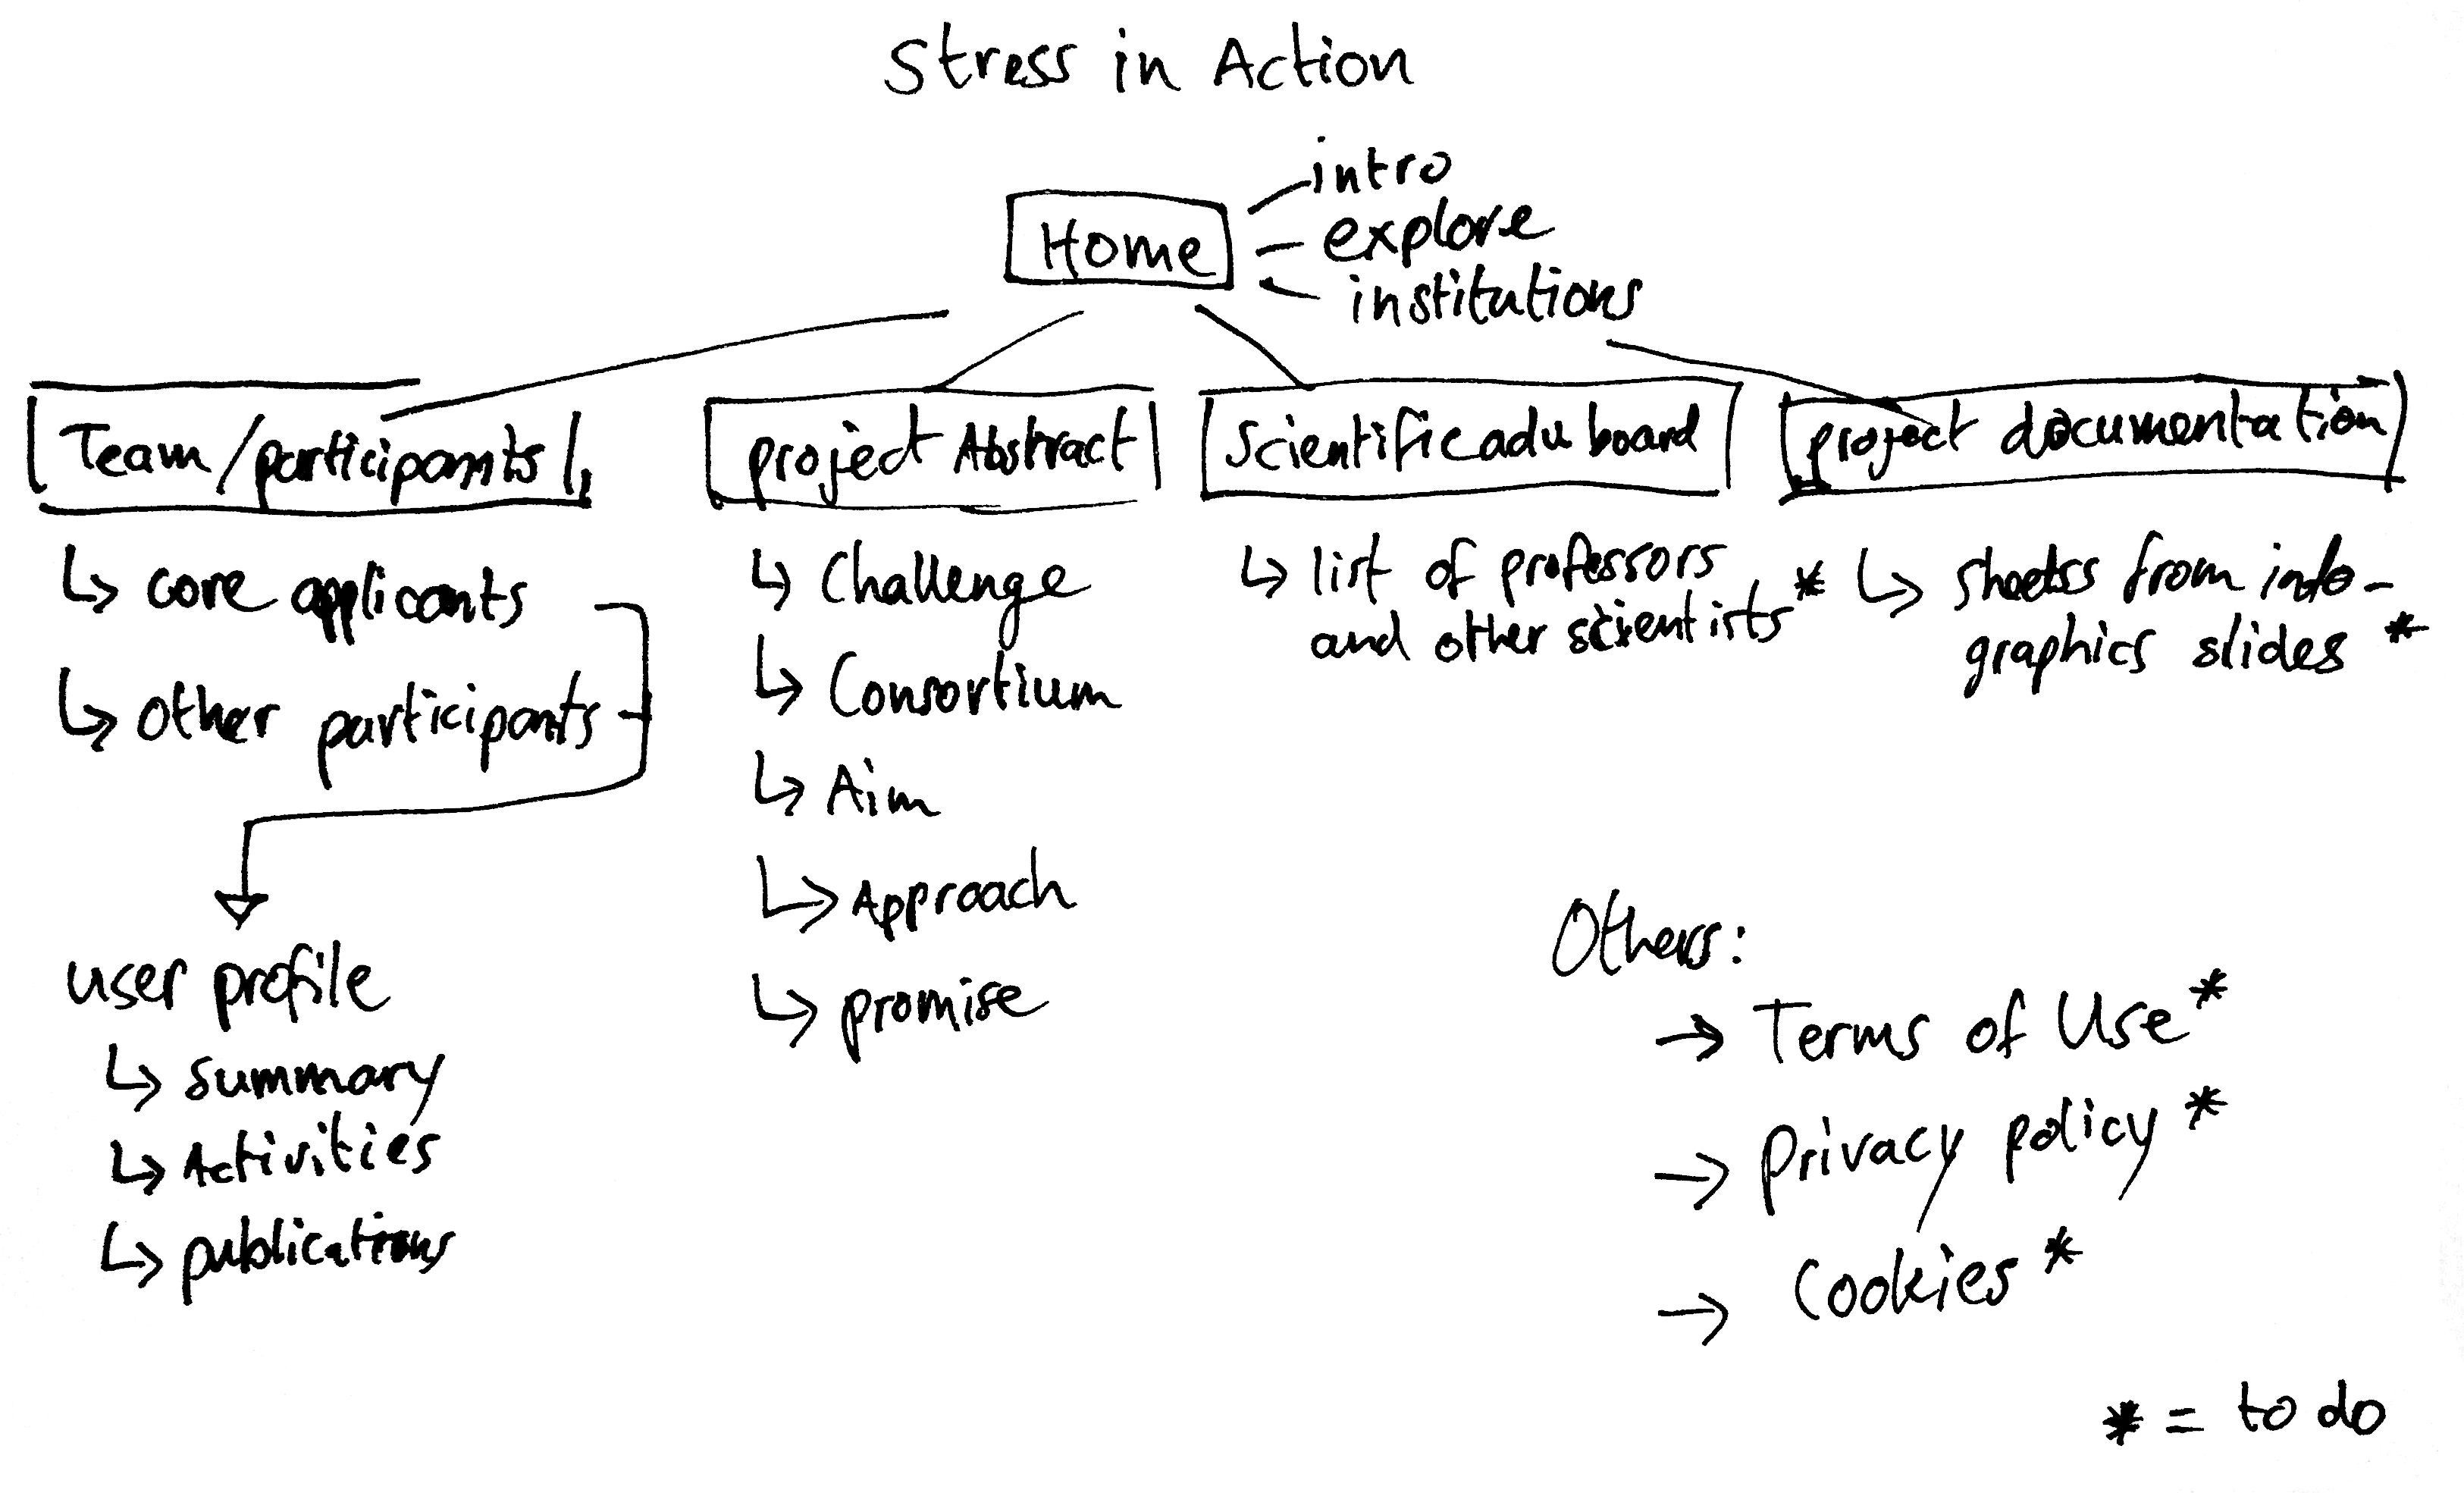 Stress in Action
Home
intro
explore
institutions
Team/participants
↳ core applicants
↳ other participants
user profile
↳ summary
↳ Activities
↳ publications
project Abstract
↳ Challenge
↳ Consortium
↳ Aim
↳ Approach
↳ promise
Scientific adv board
↳ list of professors
and other scientists *
project documentation
↳ sheets from info-
graphics slides *
Others:
→ Terms of Use *
→ Privacy policy *
→ Cookies *
* = to do